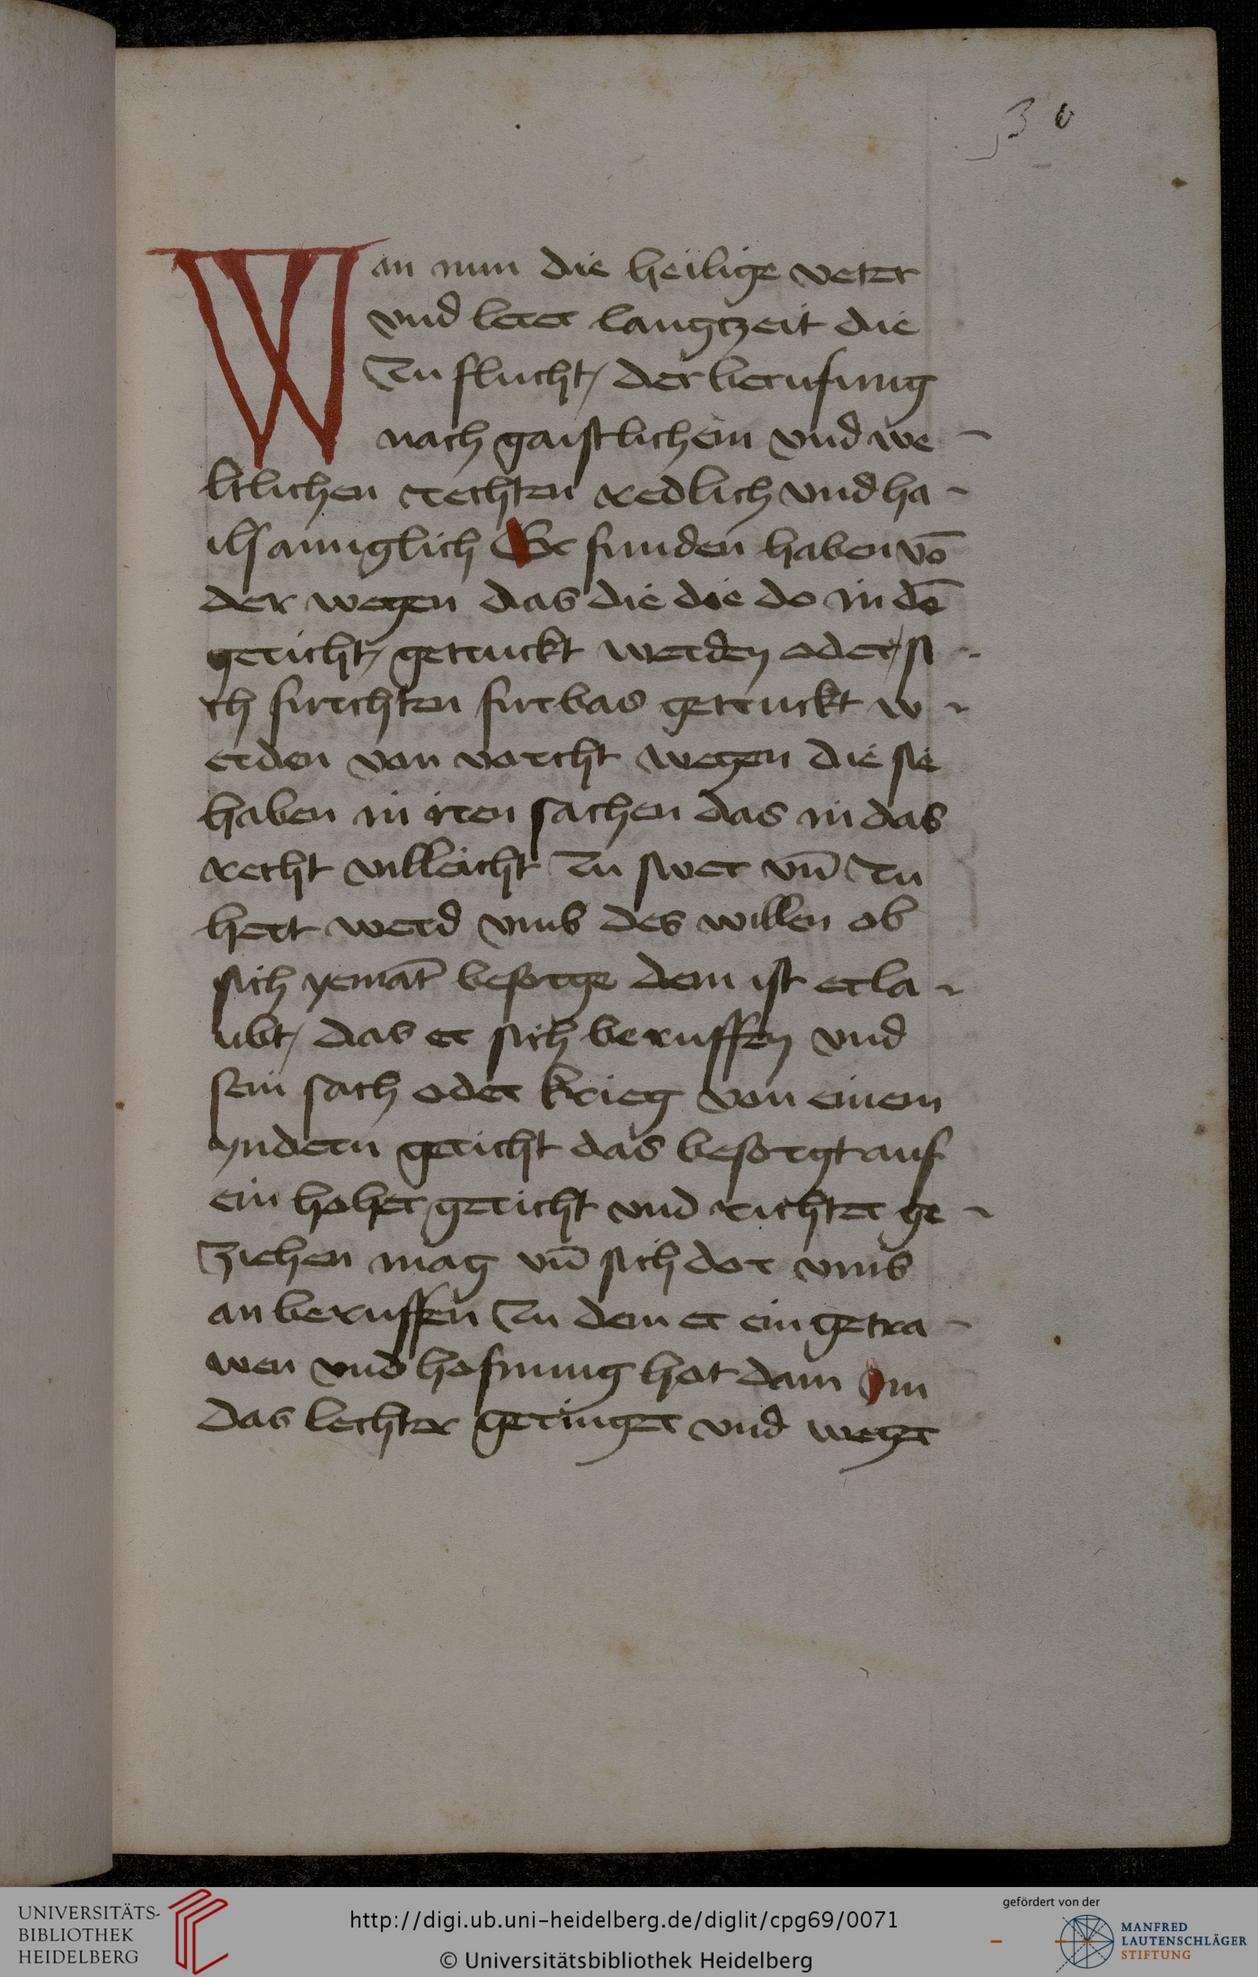 30
Wan nun die heilige veter
vnd lerer langtzeit die
Zu flucht / der berufung
nach gaistlichem vnd we -
ltlichen rechten redlich vnd ha -
ilsamiglich Ge funden haben vō
der wegen das die die do in dē
gericht / getruckt werden oder / si -
ch furchten furbas getruckt w -
erden von vorcht wegen die sie
haben in iren sachen das in das
recht villeicht Zu swer vn̄ Zu
hert werd vmb des willen ob
sich yemāt besorge dem ist erla -
ubt / das er sich beruffen vnd
sein sach oder krieg von einem
yndern gericht das besorgt auf
ein hoher gericht vnd richter ge -
ziehen mag vn̄ sich dor vmb
an beruffen Zu dem er ein getra -
wen vnd hofnung hat dam Om
das lechter geringer vnd weger
UNIVERSITÄTS-
BIBLIOTHEK
HEIDELBERG
http://digi.ub.uni-heidelberg.de/diglit/cpg69/0071
© Universitätsbibliothek Heidelberg
gefördert von der
MANFRED
LAUTENSCHLÄGER
STIFTUNG